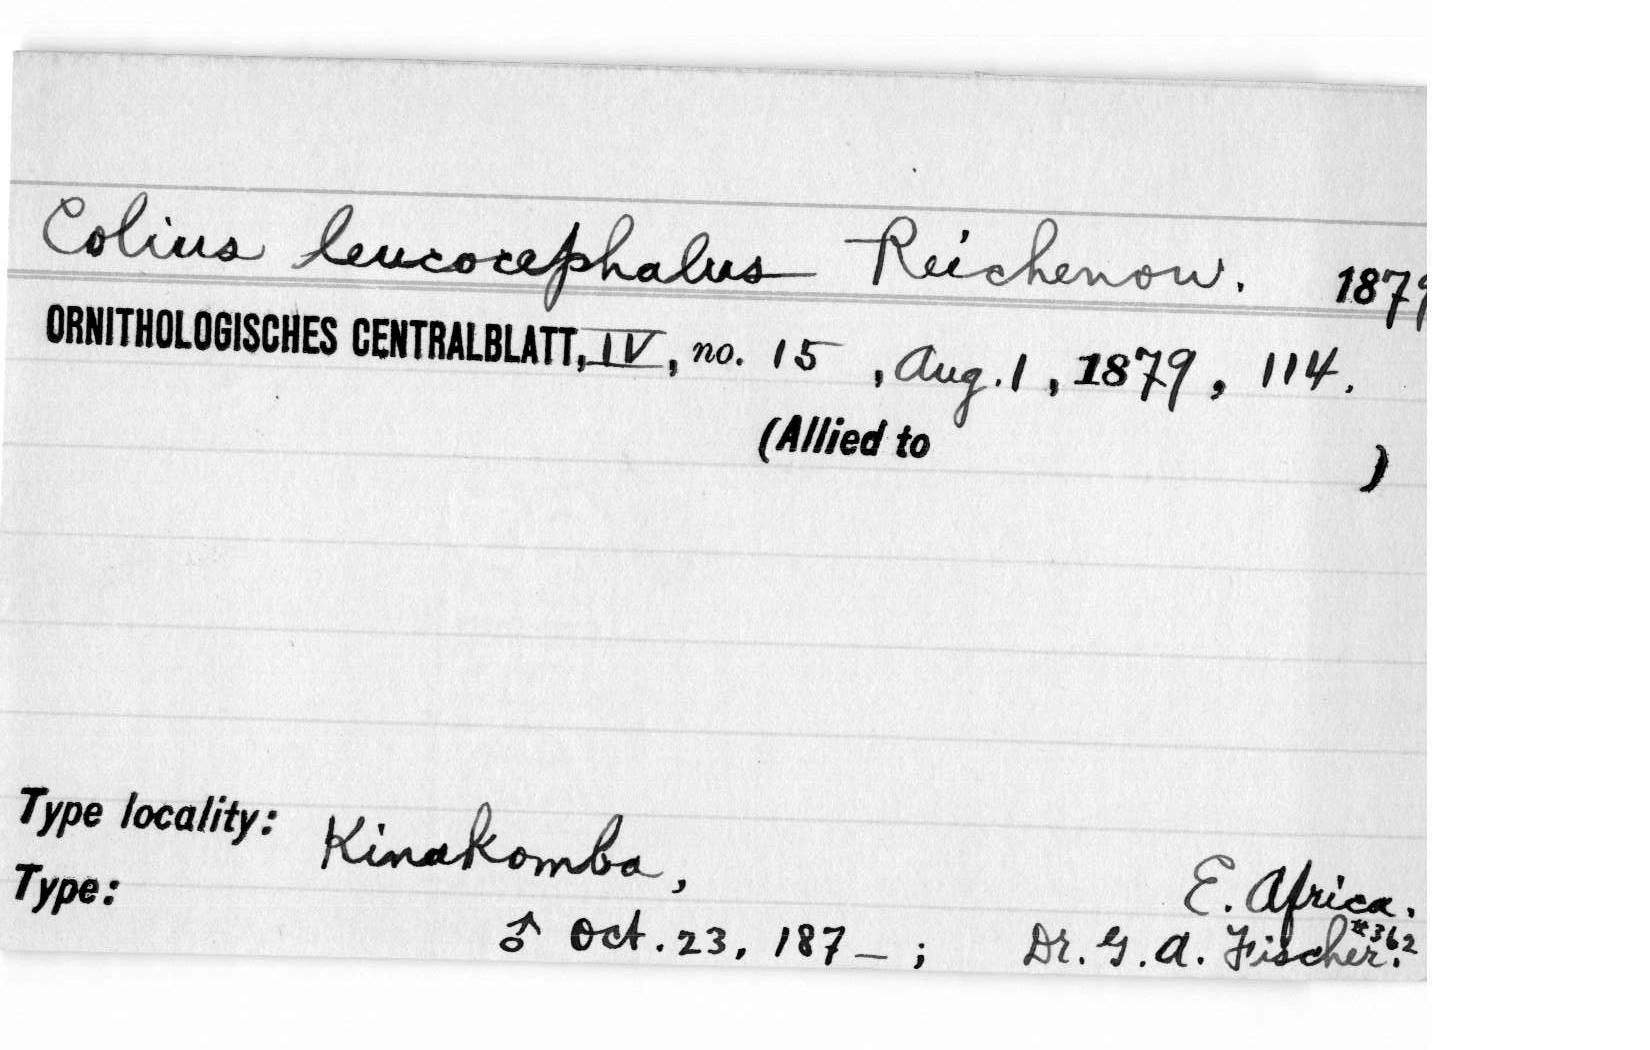 Colius leucocephalus Reichenow. 1879
ORNITHOLOGISCHES CENTRALBLATT, IV, no. 15, Aug. 1, 1879, 114.
(Allied to )
Type locality: Kinakomba, E. Africa.
Type: ♂ Oct. 23, 187_; Dr. G. A. Fischer. #362